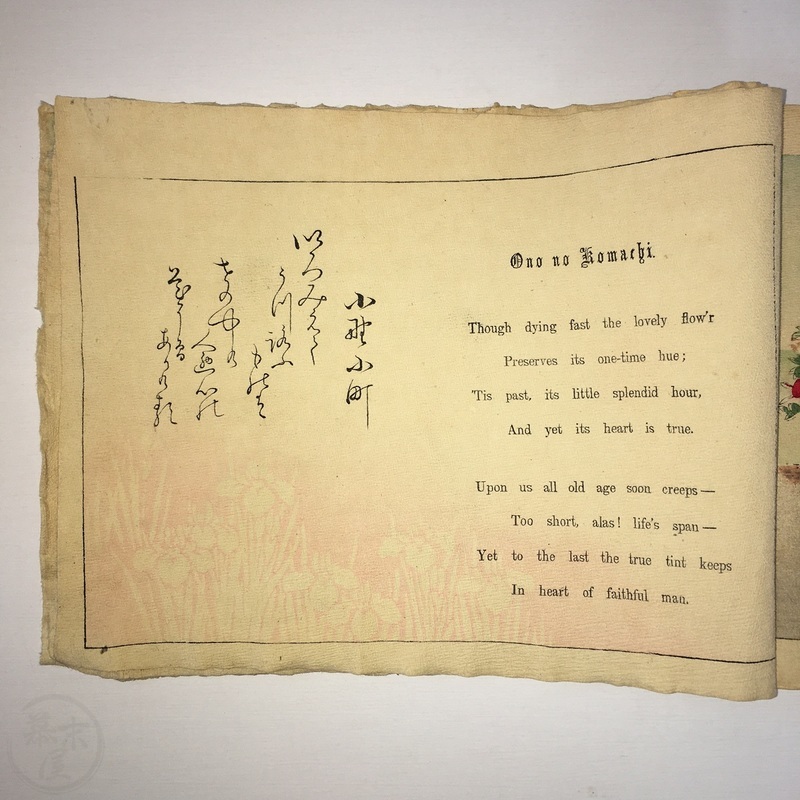 小野小町
以ろみえて
うつ路ふものは
世の中の人の心の
花にそありける
Ono no Komachi.
Though dying fast the lovely flow'r
Preserves its one-time hue;
'Tis past, its little splendid hour,
And yet its heart is true.
Upon us all old age soon creeps—
Too short, alas! life's span—
Yet to the last the true tint keeps
In heart of faithful man.
幕末屋